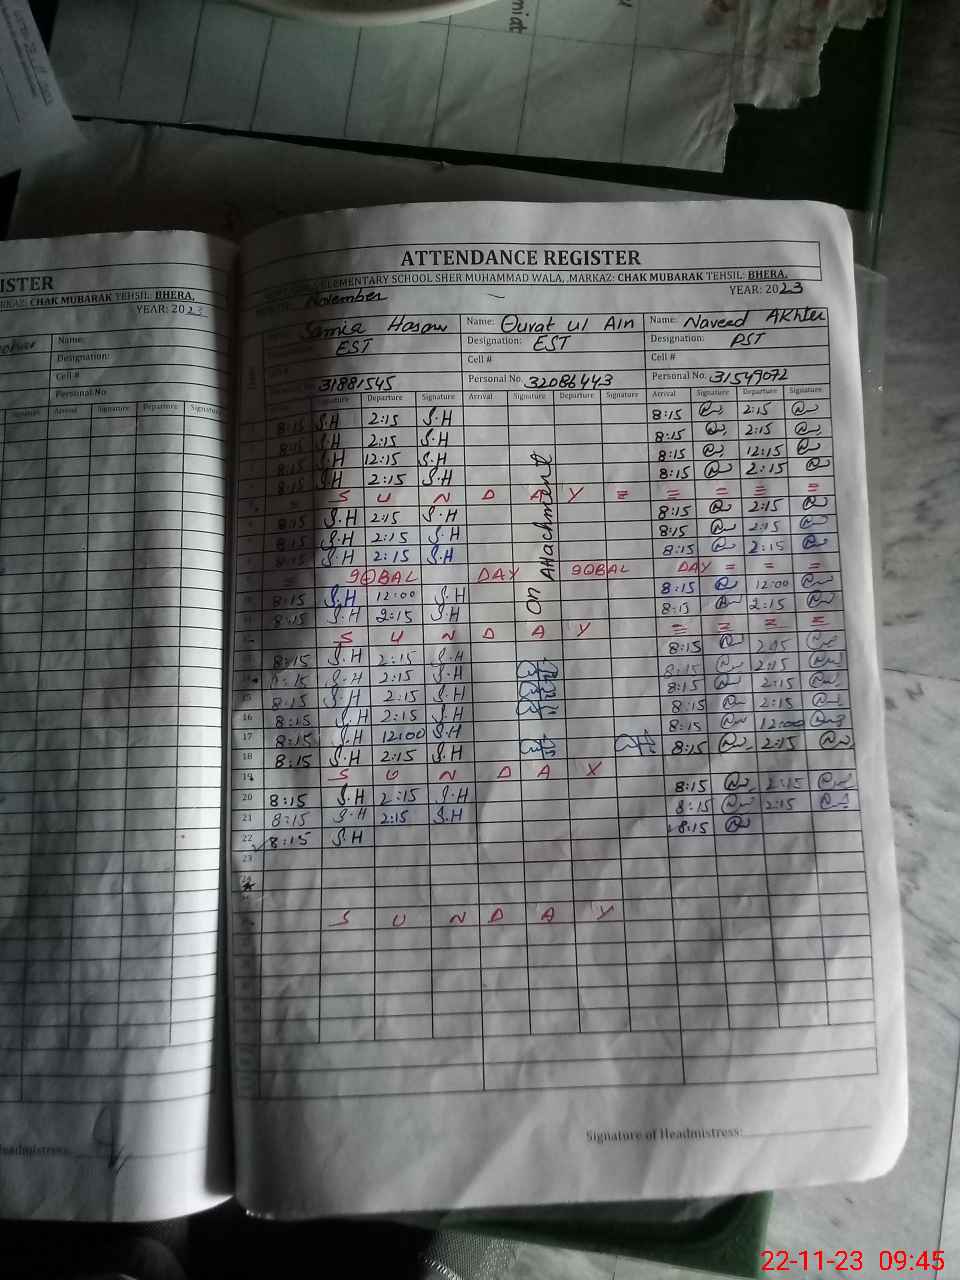 ISTER
CHAK MUBARAK TEHSIL: BHERA,
YEAR: 2023
Name:
Designation:
Cell #
Personal No
Arrival Signature Departure Signature
ATTENDANCE REGISTER
ELEMENTARY SCHOOL SHER MUHAMMAD WALA, MARKAZ: CHAK MUBARAK TEHSIL: BHERA,
November YEAR: 2023
Samia Hasan Name: Qurat ul Ain Name: Naveed Akhter
EST Designation: EST Designation: PST
Cell # Cell #
31881545 Personal No. 32086443 Personal No. 31549072
Signature Departure Signature Arrival Signature Departure Signature Arrival Signature Departure Signature
8:15 S.H 2:15 S.H 8:15 2:15
8:15 S.H 2:15 S.H 8:15 2:15
8:15 S.H 12:15 S.H 8:15 12:15
8:15 S.H 2:15 S.H 8:15 2:15
= S U N D A Y = = = = =
8:15 S.H 2:15 S.H 8:15 2:15
8:15 S.H 2:15 S.H 8:15 2:15
8:15 S.H 2:15 S.H 8:15 2:15
= 9QBAL DAY 9QBAL DAY = = =
8:15 S.H 12:00 S.H 8:15 12:00
8:15 S.H 2:15 S.H 8:15 2:15
On Attachment
S U N D A Y = = = =
8:15 S.H 2:15 S.H 8:15 2:15
8:15 S.H 2:15 S.H 8:15 2:15
15 8:15 S.H 2:15 S.H 8:15 2:15
16 8:15 S.H 2:15 S.H 8:15 2:15
17 8:15 S.H 12:00 S.H 8:15 12:00
18 8:15 S.H 2:15 S.H 8:15 2:15
19 S U N D A Y
20 8:15 S.H 2:15 S.H 8:15 2:15
21 8:15 S.H 2:15 S.H 8:15 2:15
22 8:15 S.H 8:15
23
S U N D A Y
Signature of Headmistress:
eadmistress:
22-11-23 09:45